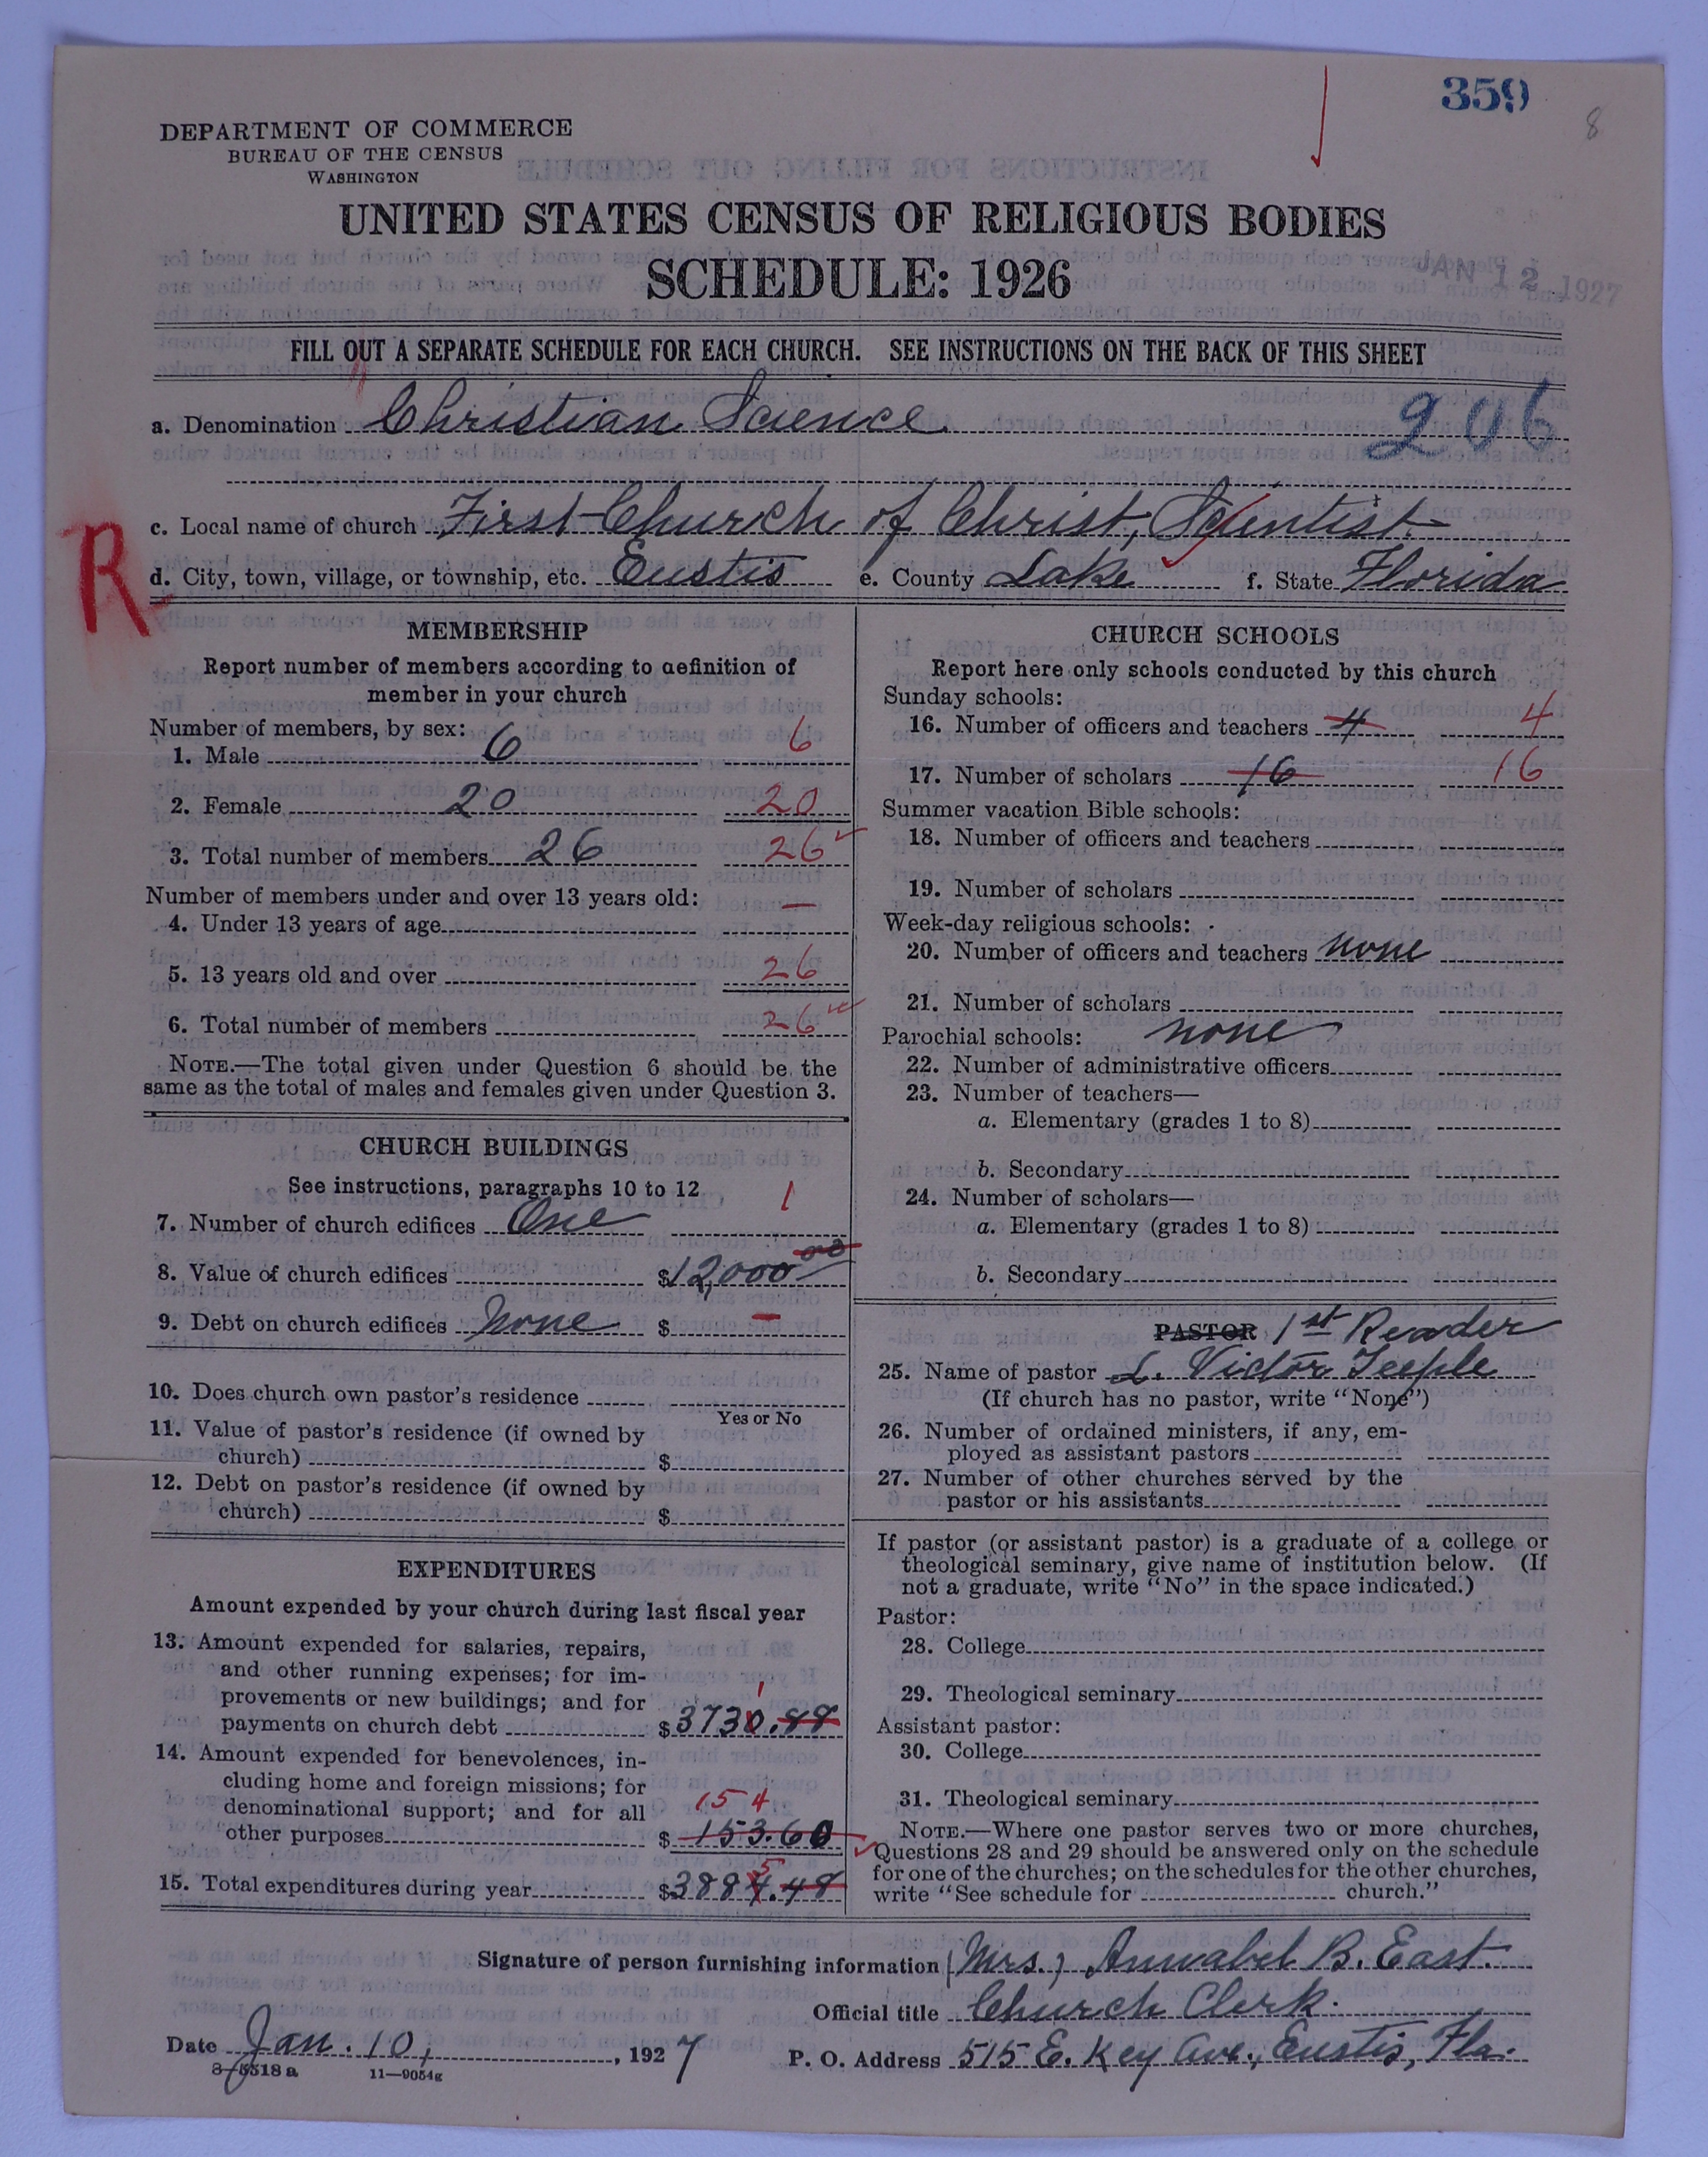 359
8
DEPARTMENT OF COMMERCE
BUREAU OF THE CENSUS
WASHINGTON
UNITED STATES CENSUS OF RELIGIOUS BODIES
SCHEDULE: 1926
JAN 12 1927
FILL OUT A SEPARATE SCHEDULE FOR EACH CHURCH. SEE INSTRUCTIONS ON THE BACK OF THIS SHEET
a. Denomination Christian Science 206
c. Local name of church First Church of Christ, Scientist.
R
d. City, town, village, or township, etc. Eustis e. County Lake f. State Florida
MEMBERSHIP
Report number of members according to definition of
member in your church
Number of members, by sex:
1. Male 6 6
2. Female 20 20
3. Total number of members 26 26
Number of members under and over 13 years old:
4. Under 13 years of age —
5. 13 years old and over 26
6. Total number of members 26
NOTE.—The total given under Question 6 should be the
same as the total of males and females given under Question 3.
CHURCH BUILDINGS
See instructions, paragraphs 10 to 12
7. Number of church edifices One 1
8. Value of church edifices $12,000 00
9. Debt on church edifices None $ —
10. Does church own pastor's residence
Yes or No
11. Value of pastor's residence (if owned by
church) $
12. Debt on pastor's residence (if owned by
church) $
EXPENDITURES
Amount expended by your church during last fiscal year
13. Amount expended for salaries, repairs,
and other running expenses; for im-
provements or new buildings; and for
1
payments on church debt $3730.88
14. Amount expended for benevolences, in-
cluding home and foreign missions; for
denominational support; and for all
154
other purposes $153.60
5
15. Total expenditures during year $3884.48
CHURCH SCHOOLS
Report here only schools conducted by this church
Sunday schools:
16. Number of officers and teachers 4 4
17. Number of scholars 16 16
Summer vacation Bible schools:
18. Number of officers and teachers
19. Number of scholars
Week-day religious schools:
20. Number of officers and teachers none
21. Number of scholars
Parochial schools: none
22. Number of administrative officers
23. Number of teachers—
a. Elementary (grades 1 to 8)
b. Secondary
24. Number of scholars—
a. Elementary (grades 1 to 8)
b. Secondary
PASTOR 1st Reader
25. Name of pastor L. Victor Teeple
(If church has no pastor, write "None")
26. Number of ordained ministers, if any, em-
ployed as assistant pastors
27. Number of other churches served by the
pastor or his assistants
If pastor (or assistant pastor) is a graduate of a college or
theological seminary, give name of institution below. (If
not a graduate, write "No" in the space indicated.)
Pastor:
28. College
29. Theological seminary
Assistant pastor:
30. College
31. Theological seminary
NOTE.—Where one pastor serves two or more churches,
Questions 28 and 29 should be answered only on the schedule
for one of the churches; on the schedules for the other churches,
write "See schedule for church."
Signature of person furnishing information (Mrs.) Annabel B. East.
Official title Church Clerk.
Date Jan. 10, 1927 P. O. Address 515 E. Key Ave., Eustis, Fla.
8-5518a 11—9054g